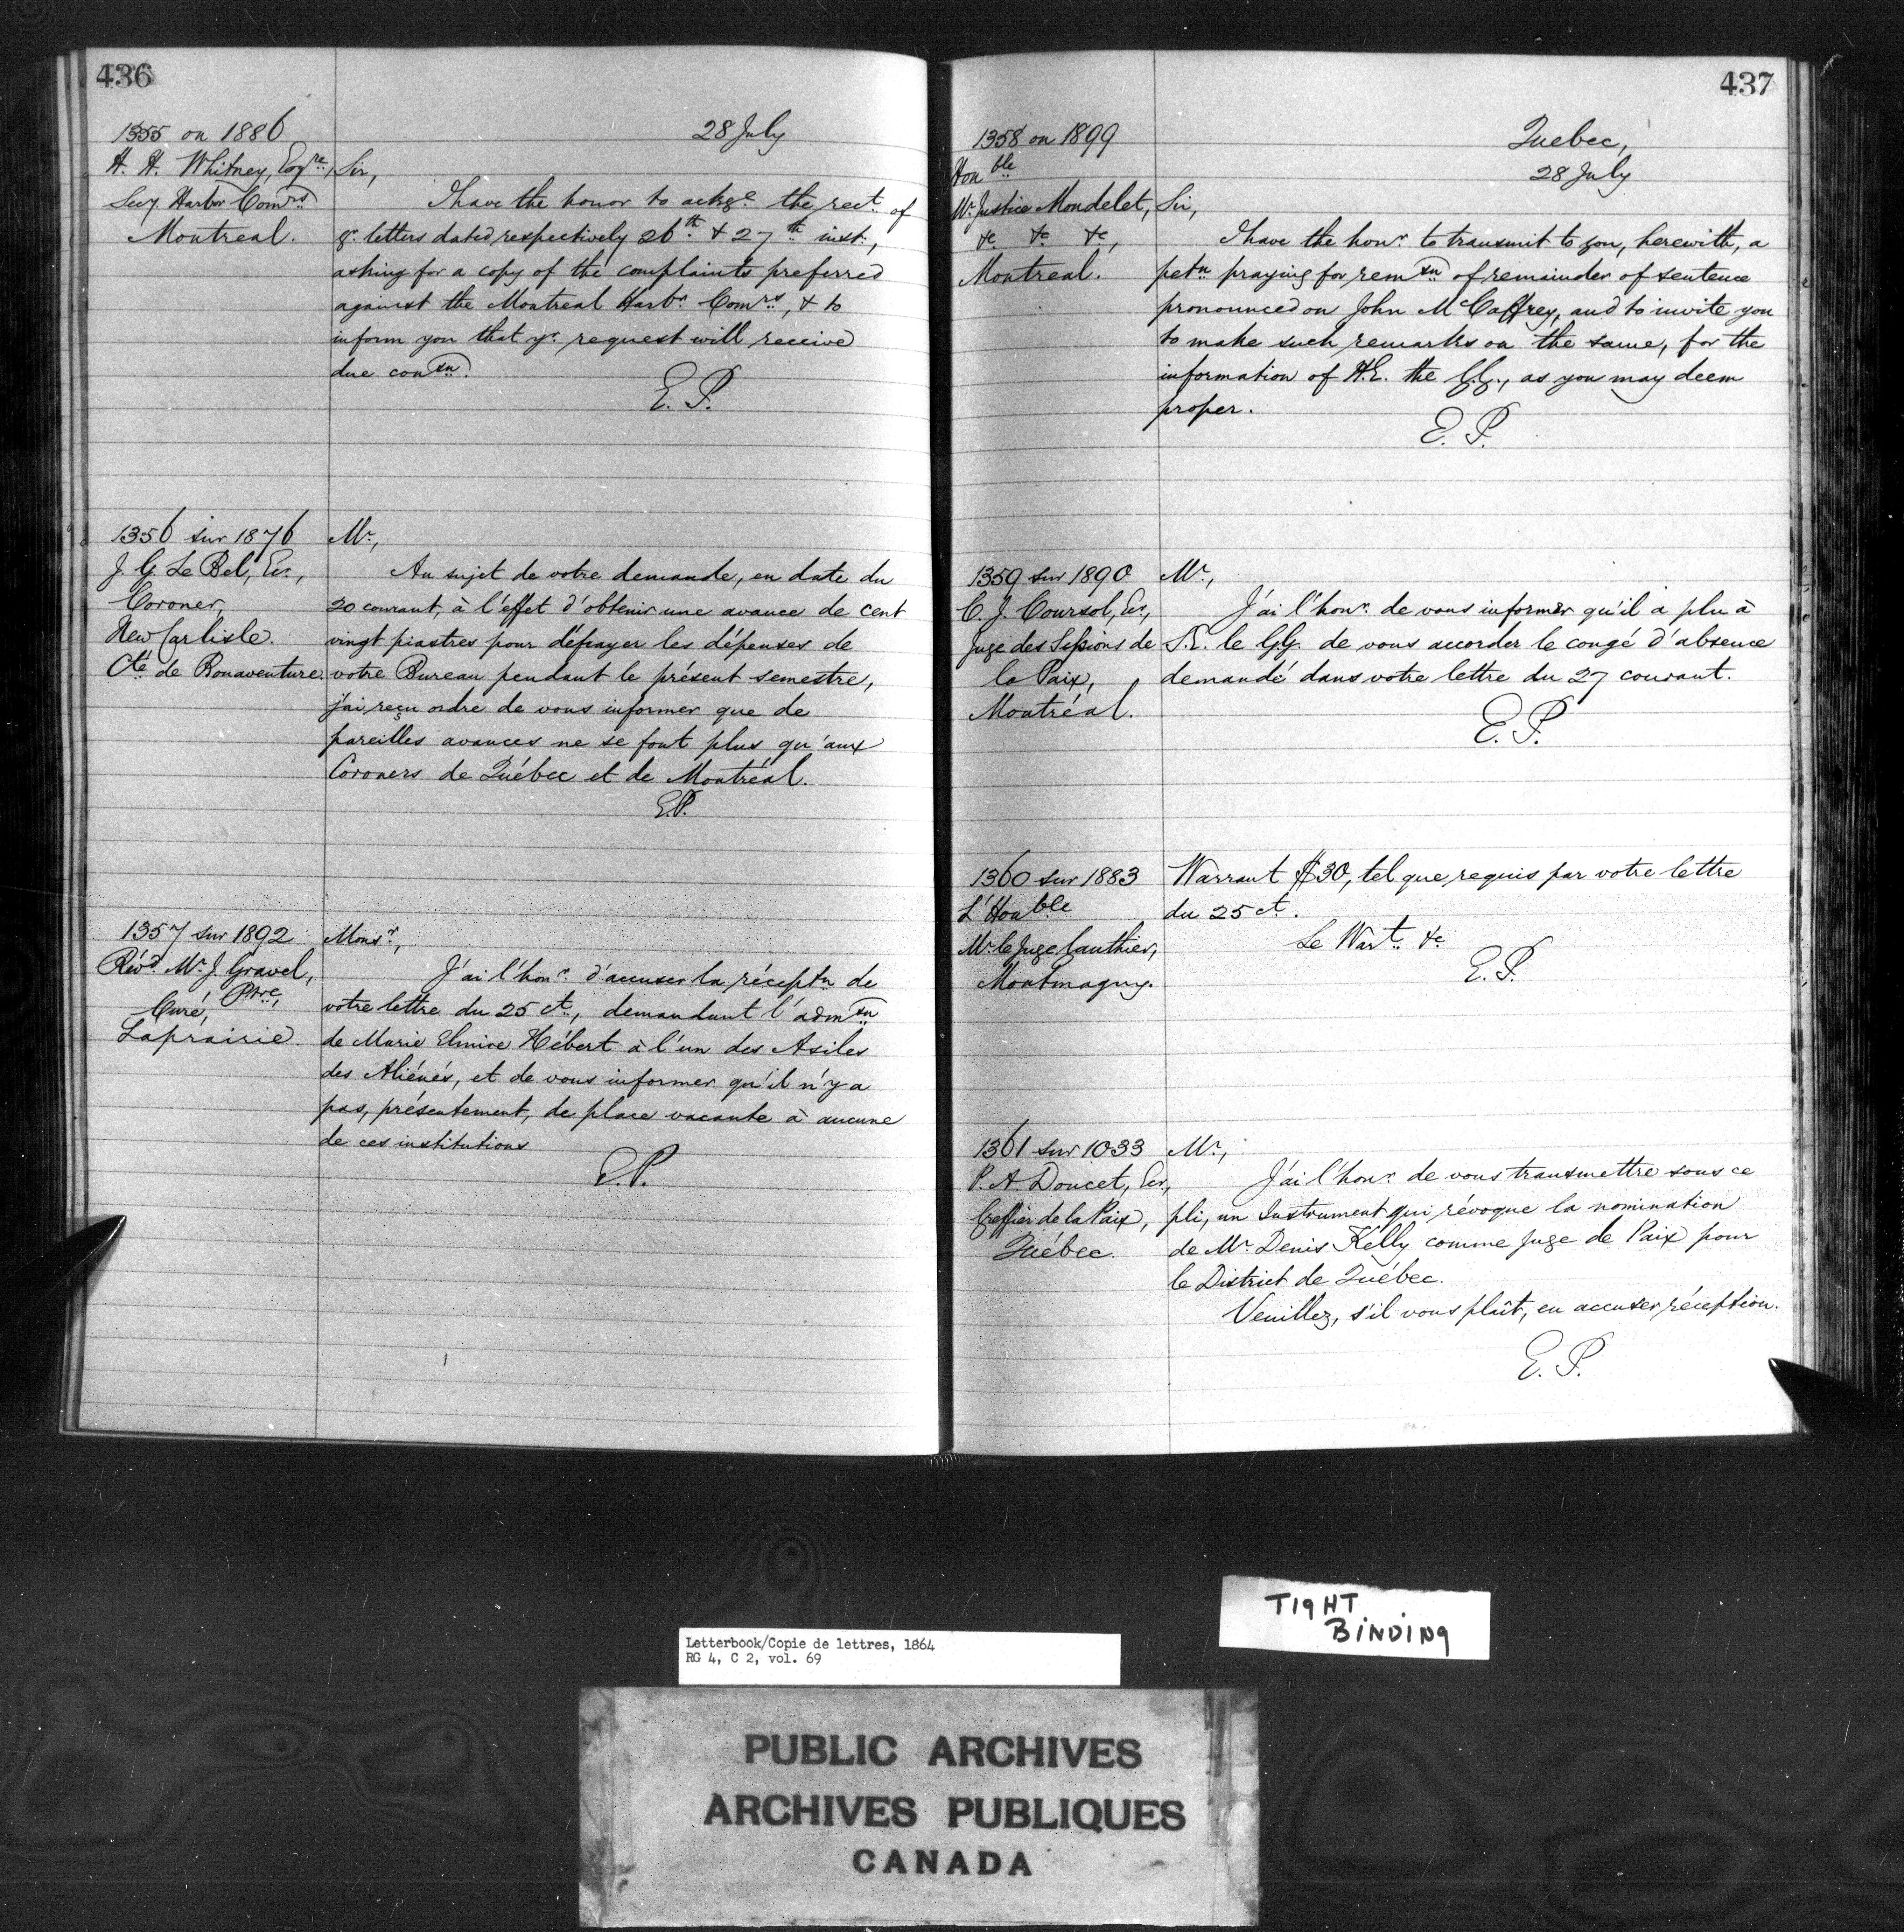 436
1355 on 1886
28 July
H. H. Whitney, Esqre,
Secy. Harbor Comrs
Montreal.
Sir,
I have the honor to ackge the rect. of
yr. letters dated respectively 26th & 27th inst.,
asking for a copy of the complaints preferred
against the Montreal Harbr. Comrs., & to
inform you that yr. request will receive
due consn.
E. P.
1356 sur 1876
J. G. Le Bel, Ecr.,
Coroner,
New Carlisle.
Cté de Bonaventure.
Mr.,
Au sujet de votre demande, en date du
20 courant, à l'effet d'obtenir une avance de cent
vingt piastres pour défrayer les dépenses de
votre Bureau pendant le présent semestre,
j'ai reçu ordre de vous informer que de
pareilles avances ne se font plus qu'aux
Coroners de Québec et de Montréal.
E.P.
1357 sur 1892
Révd. Mr. J. Gravel,
Ptre,
Curé,
Laprairie.
Monsr.,
J'ai l'honr. d'accuser la réceptn de
votre lettre du 25 ct., demandant l'admsn
de Marie Elmire Hébert à l'un des Asiles
des Aliénés, et de vous informer qu'il n'y a
pas, présentement, de place vacante à aucune
de ces institutions
E.P.
437
1358 on 1899
Quebec,
28 July
Honble
Mr. Justice Mondelet,
&c &c &c,
Montreal.
Sir,
I have the honr. to transmit to you, herewith, a
petn praying for remsn of remainder of sentence
pronounced on John McCaffrey, and to invite you
to make such remarks on the same, for the
information of H.E. the G.G., as you may deem
proper.
E. P.
1359 sur 1890
C. J. Coursol, Ecr.,
Juge des Sessions de
la Paix,
Montréal.
Mr.,
J'ai l'honr. de vous informer qu'il a plu à
S.E. le G.G. de vous accorder le congé d'absence
demandé dans votre lettre du 27 courant.
E. P.
1360 sur 1883
L'Honble
Mr. le Juge Gauthier,
Montmagny.
Warrant $30, tel que requis par votre lettre
du 25 ct.
Le Wart. &c
E. P.
1361 sur 1033
P. A. Doucet, Ecr.,
Greffier de la Paix,
Québec.
Mr.,
J'ai l'honr. de vous transmettre sous ce
pli, un Instrument qui révoque la nomination
de Mr. Denis Kelly comme Juge de Paix pour
le District de Québec.
Veuillez, s'il vous plaît, en accuser réception.
E. P.
TIGHT
BINDING
Letterbook/Copie de lettres, 1864
RG 4, C 2, vol. 69
PUBLIC ARCHIVES
ARCHIVES PUBLIQUES
CANADA